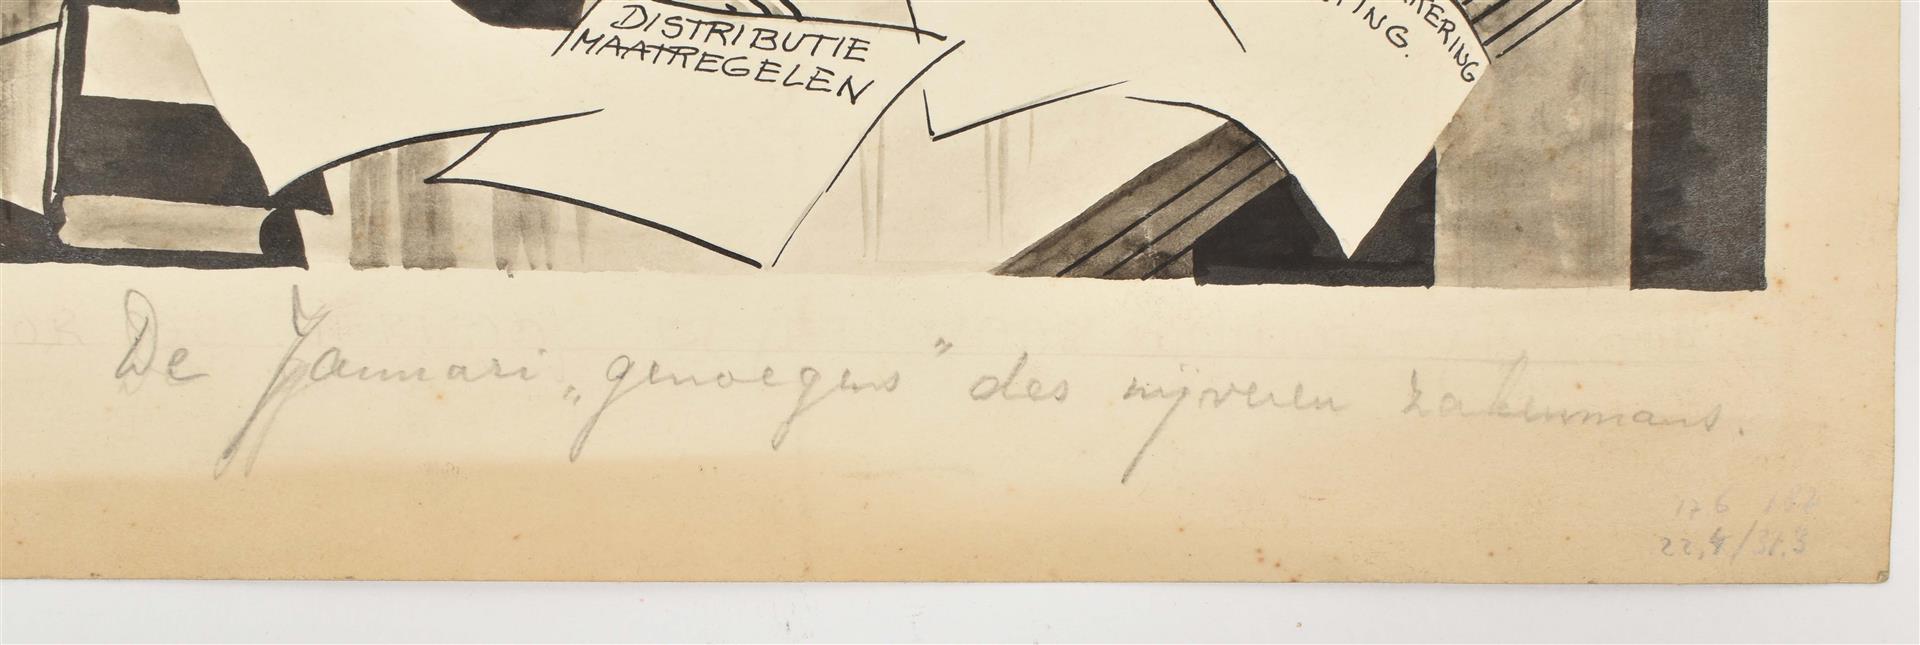 DISTRIBUTIE
MAATREGELEN
De Januari „genoegens" des nijveren zakenmans.
22,4/31.3